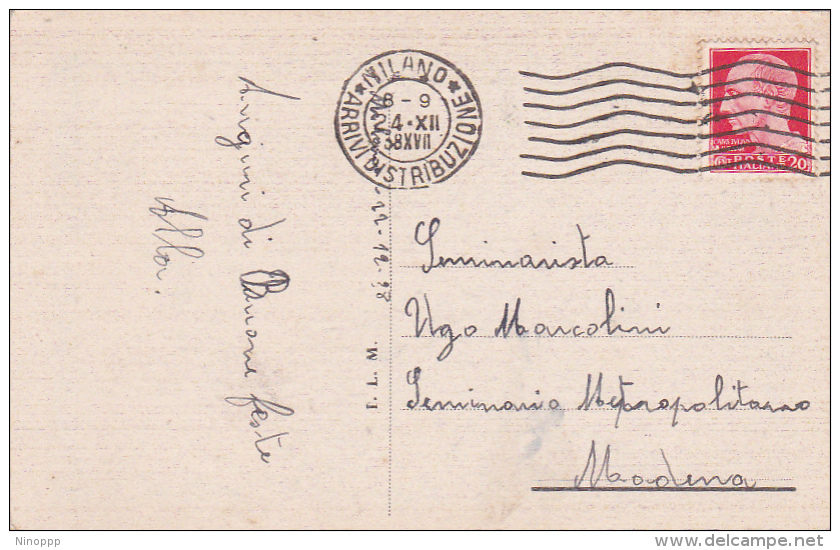 Auguri di Buone feste
Alba.
MILANO
ARRIVI DISTRIBUZIONE
8-9
24·XII
38XVII
22-12-38
POSTE
ITALIANE
20
F. L. M.
Seminarista
Ugo Marcolini
Seminario Metropolitano
Modena
Ninoppp
delcampe.net